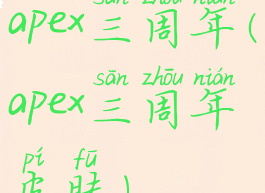 sān zhōu nián
apex三周年(
sān zhōu nián
apex三周年
pí fū
皮肤)